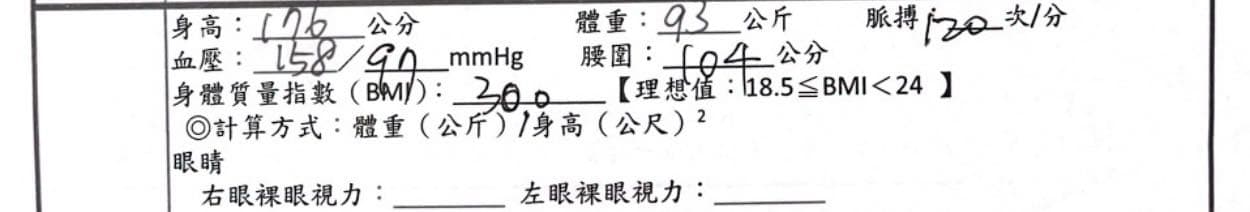 身高：176公分 體重：93公斤 脈搏120次/分
血壓：158/90mmHg 腰圍：104公分
身體質量指數（BMI）：30.0【理想值：18.5≦BMI＜24 】
◎計算方式：體重（公斤）/身高（公尺）²
眼睛
右眼裸眼視力：________ 左眼裸眼視力：________